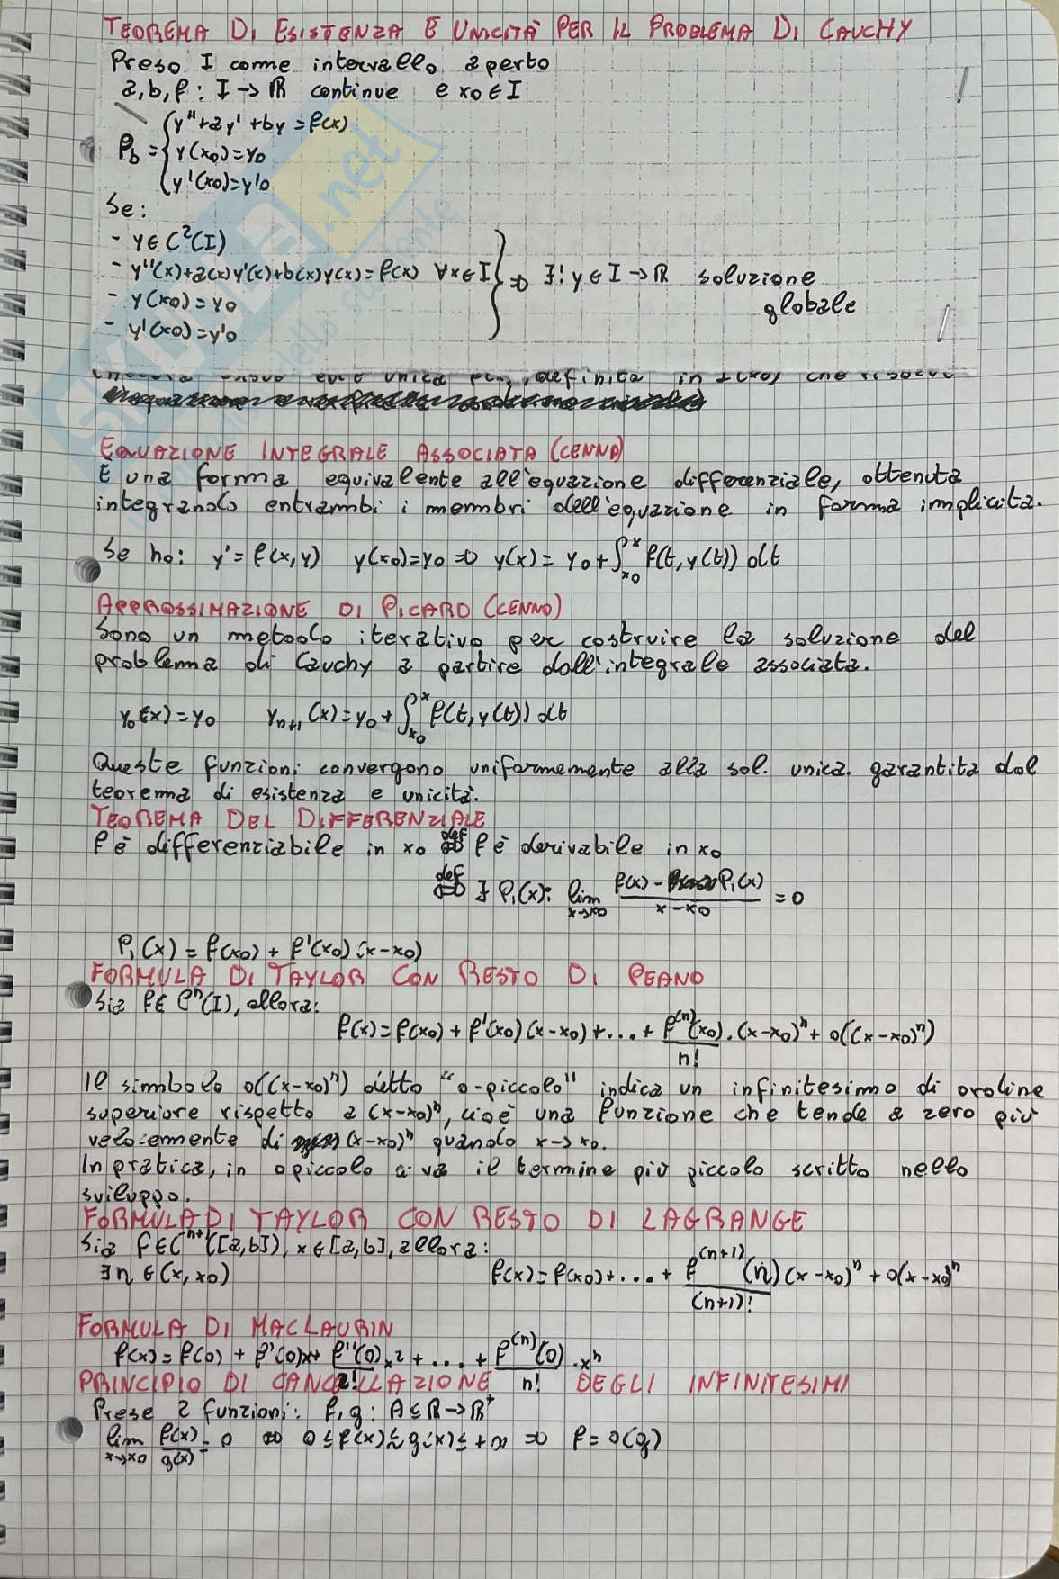 TEOREMA DI ESISTENZA E UNICITÀ PER IL PROBLEMA DI CAUCHY
Preso I come intervallo aperto
a, b, f : I → ℝ continue e x₀ ∈ I
P_b = { y'' + ay' + by = f(x)
y(x₀) = y₀
y'(x₀) = y'₀
Se:
- y ∈ C²(I)
- y''(x) + a(x)y'(x) + b(x)y(x) = f(x) ∀x ∈ I } ⇒ ∃! y ∈ I → ℝ soluzione
globale
- y(x₀) = y₀
- y'(x₀) = y'₀
EQUAZIONE INTEGRALE ASSOCIATA (CENNO)
È una forma equivalente all'equazione differenziale, ottenuta
integrando entrambi i membri dell'equazione in forma implicita.
Se ho: y' = f(x,y) y(x₀) = y₀ ⇒ y(x) = y₀ + ∫_{x₀}^{x} f(t, y(t)) dt
APPROSSIMAZIONE DI PICARD (CENNO)
Sono un metodo iterativo per costruire la soluzione del
problema di Cauchy a partire dall'integrale associata.
y₀(x) = y₀ y_{n+1}(x) = y₀ + ∫_{x₀}^{x} f(t, y(t)) dt
Queste funzioni convergono uniformemente alla sol. unica garantita dal
teorema di esistenza e unicità.
TEOREMA DEL DIFFERENZIALE
f è differenziabile in x₀ ⇔(def) f è derivabile in x₀
⇔(def) ∃ P₁(x): lim_{x→x₀} (f(x) - P₁(x))/(x - x₀) = 0
P₁(x) = f(x₀) + f'(x₀)(x - x₀)
FORMULA DI TAYLOR CON RESTO DI PEANO
Sia f ∈ Cⁿ(I), allora:
f(x) = f(x₀) + f'(x₀)(x - x₀) + .... + f⁽ⁿ⁾(x₀)/n! · (x - x₀)ⁿ + o((x - x₀)ⁿ)
Il simbolo o((x - x₀)ⁿ) detto "o-piccolo" indica un infinitesimo di ordine
superiore rispetto a (x - x₀)ⁿ, cioè una funzione che tende a zero più
velocemente di (x - x₀)ⁿ quando x → x₀.
In pratica, in o piccolo ci va il termine più piccolo scritto nello
sviluppo.
FORMULA DI TAYLOR CON RESTO DI LAGRANGE
Sia f ∈ Cⁿ⁺¹([a,b]), x ∈ [a,b], allora:
∃ η ∈ (x, x₀) f(x) = f(x₀) + .... + f⁽ⁿ⁺¹⁾(η)/(n+1)! (x - x₀)ⁿ + o(x - x₀)ⁿ
FORMULA DI MACLAURIN
f(x) = f(0) + f'(0)x + f''(0)/2! x² + .... + f⁽ⁿ⁾(0)/n! · xⁿ
PRINCIPIO DI CANCELLAZIONE DEGLI INFINITESIMI
Prese 2 funzioni: f, g : A ⊆ ℝ → ℝ⁺
lim_{x→x₀} f(x)/g(x) = 0 ⇔ 0 ≤ f(x) ≲ g(x) ≤ +∞ ⇒ f = o(g)